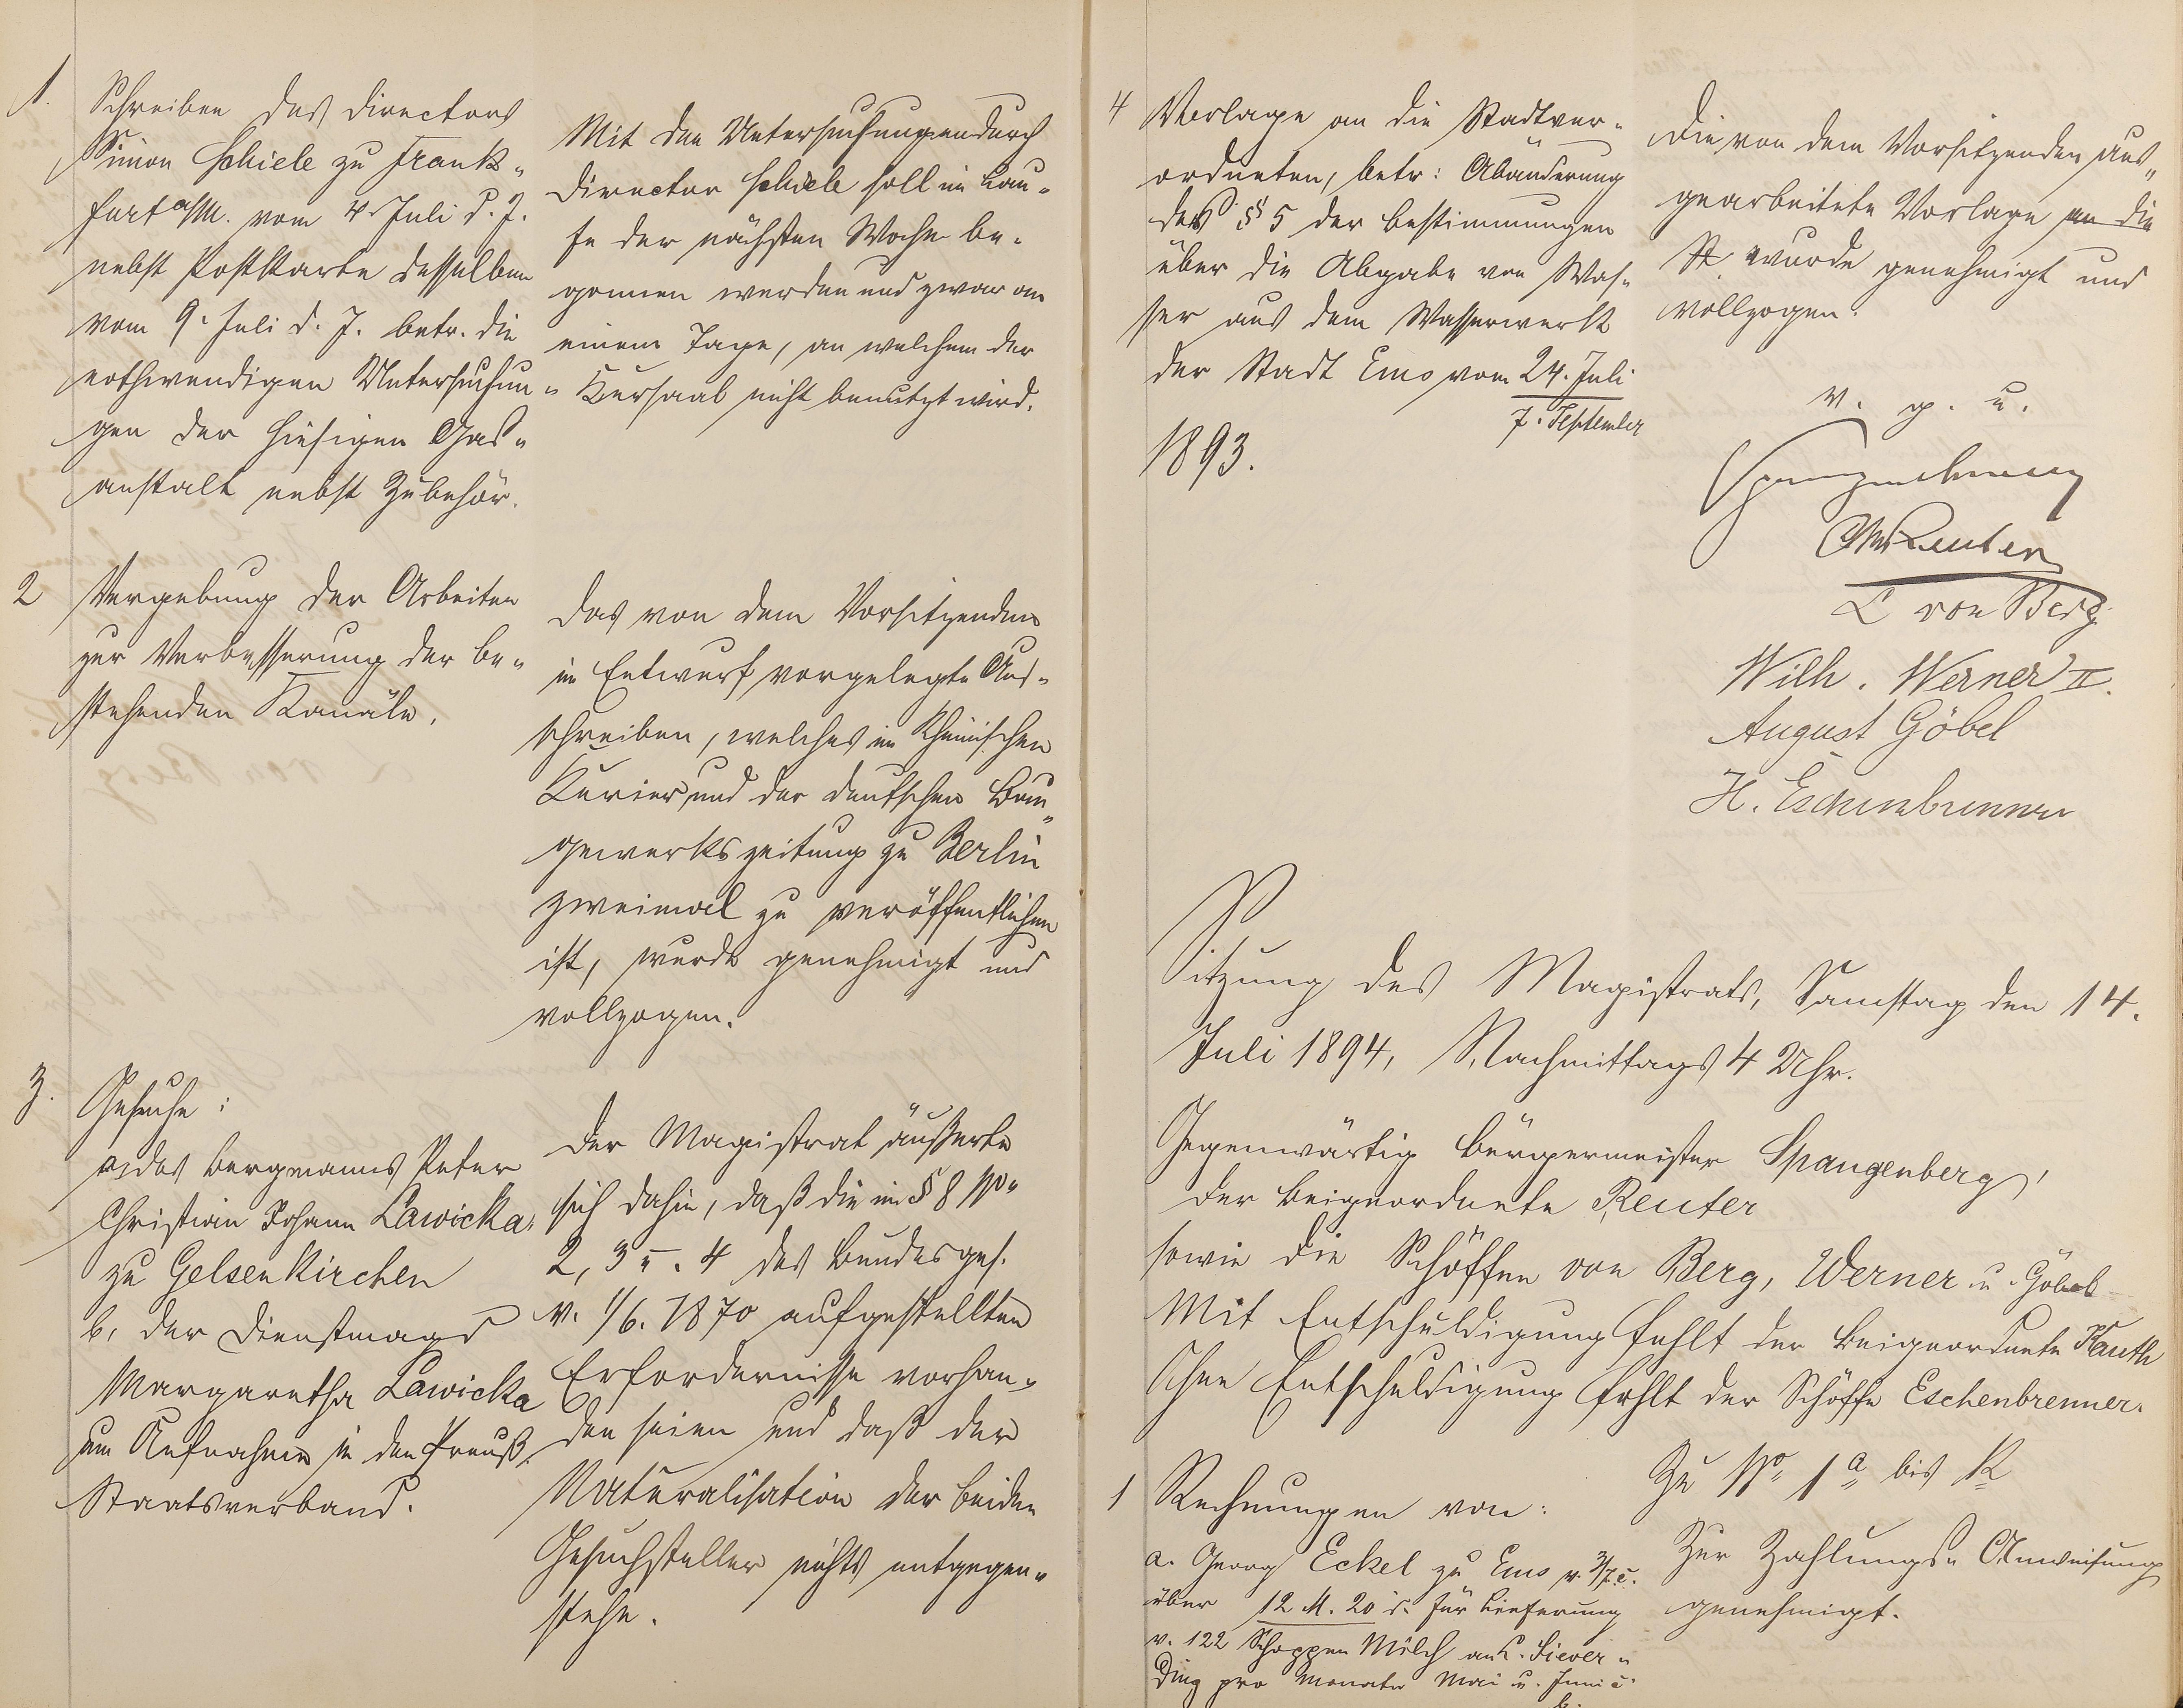 1.
Schreiben des Directors
Simon Schiele zu Frank-
furt a/M. vom 4. Juli d. J.
nebst Postkarte desselben
vom 9. Juli d. J. betr. die
nothwendigen Untersuchun-
gen der hiesigen Gas-
anstalt nebst Zubehör.
Mit den Untersuchungen durch
Director Schiele soll im Lau-
fe der nächsten Woche be-
gonnen werden und zwar an
einem Tage, an welchem der
Kursaal nicht benutzt wird.
2
Vergebung der Arbeiten
zur Verbesserung der be-
stehenden Kanäle.
Das von dem Vorsitzenden
im Entwurf vorgelegte Aus-
schreiben, welches im Rheinischen
Kurier und der deutschen Bau-
gewerkszeitung zu Berlin
zweimal zu veröffentlichen
ist, wurde genehmigt und
vollzogen.
3.
Gesuche:
a, des Bergmanns Peter
Christian Johann Lawicka,
zu Gelsenkirchen
b, der Dienstmagd
Margaretha Lawicka
um Aufnahme in den Preuß.
Staatsverband.
Der Magistrat äußerte
sich dahin, daß die im § 8 No
2, 3 u. 4 des Bundesges.
v. 1/6. 1870 aufgestellten
Erfordernisse vorhan-
den seien und daß der
Naturalisation der beiden
Gesuchsteller nichts entgegen-
stehe.
4
Vorlage an die Stadtver-
ordneten, betr: Abänderung
des § 5 der Bestimmungen
über die Abgabe von Was-
ser aus dem Wasserwerk
der Stadt Ems vom 24. Juli
7. September
1893.
Die von dem Vorsitzenden aus-
gearbeitete Vorlage an die
St. wurde genehmigt und
vollzogen.
v. g. u.
Spangenberg
Reuter
L von Berg
Wilh. Werner II.
August Göbel
H. Eschenbrenner
Sitzung des Magistrats, Samstag den 14.
Juli 1894, Nachmittags 4 Uhr.
Gegenwärtig Bürgermeister Spangenberg,
der Beigeordnete Reuter
sowie die Schöffen von Berg, Werner u. Göbel
Mit Entschuldigung fehlt der Beigeordnete Kauth
Ohne Entschuldigung fehlt der Schöffe Eschenbrenner.
1
Rechnungen von:
a. Georg Eckel zu Ems v. 3/7. c.
über 12 M. 20 d. für Lieferung
v. 122 Schoppen Milch an L. Siever-
ding pro Monate Mai u. Juni c.
b.
Zu No 1 a bis k
Zur Zahlungs-Anweisung
genehmigt.